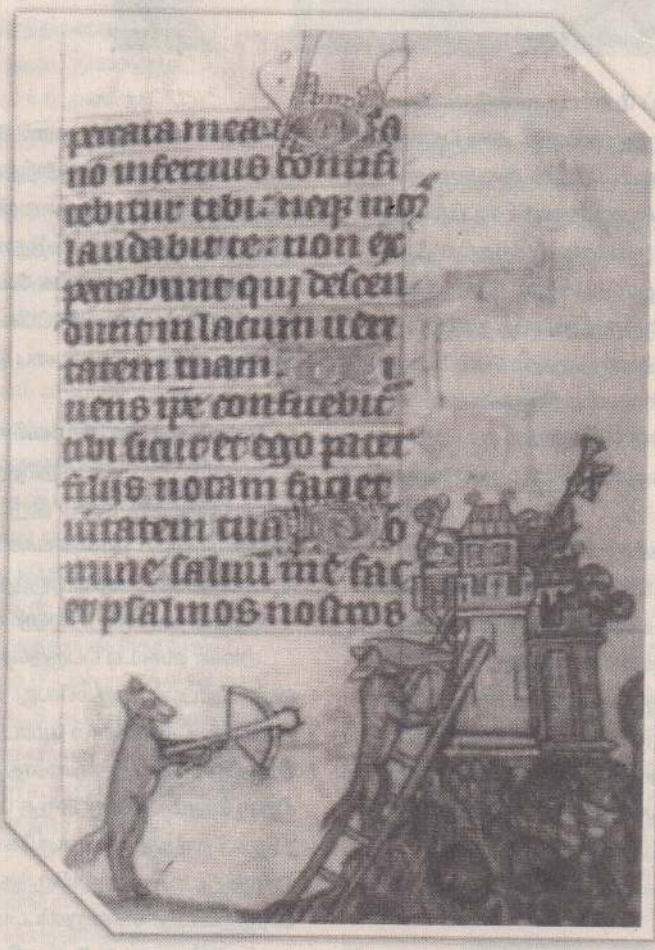 peccata mea. Q̄a
nō infernus confi
tebitur tibi: neq; mo2s
laudabit te: non ex
pectabunt qui descen
dunt in lacum ueri
tatem tuam. Ui
uens ip̄e confitebit̄
tibi sicut et ego pater
filijs notam faciet
ūitatem tuā. Do
mine saluū me fac
et psalmos nostros